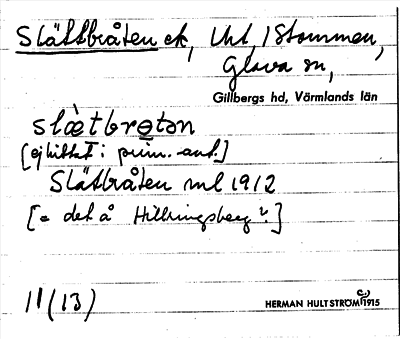 Slättbråten ck, Uht, 1 Stommen,
Glava sn,
Gillbergs hd, Värmlands län
slæ̀tbrɵtən
[ej hittat i prim. -ant.]
Slätbråten ml 1912
[= det å Hillringsberg?]
11 (13)
HERMAN HULTSTRÖM 1915